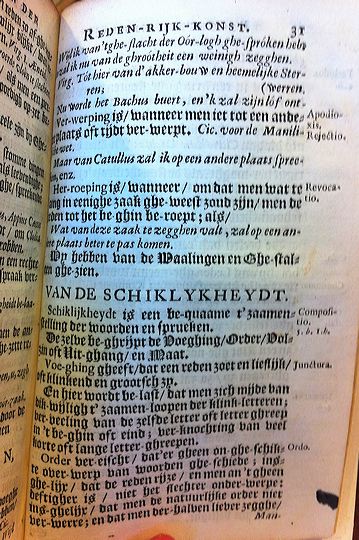 REDEN-RIJK-KONST. 31
Wijl ik van 'tghe-slacht der Oór-logh ghe-spróken heb,
zal ik nu van de ghróótheit een weinigh zegghen.
Virg. Tót hier van d'akker-bouw en heemelijke Ster-
ren; (werren,
Nu wordt het Bachus buert, en'k zal zijn lóf ont-
Ver-werping is/ wanneer men iet tot een ande- Apodio-
plaats oft tijdt ver-werpt. Cic. voor de Manili- xis,
wet. Rejectio.
Maar van Catullus zal ik op een andere plaats spree-
ken, enz.
Her-roeping is/ wanneer/ om dat men wat te Revoca-
lang in eenighe zaak ghe-weest zoud zijn/ men de tio.
reden tot het be-ghin be-roept; als/
Wat van deze zaak te zegghen valt, zal op een an-
dere plaats beter te pas komen.
Wy hebben van de Waalingen en Ghe-stal-
ten ghe-zien.
VAN DE SCHIKLYKHEYDT.
Schiklijkheydt is een be-quaame t'zaamen- Composi-
stelling der woorden en spreuken. tio.
De zelve be-ghrijpt de Voeghing/ Order/ Vol- 3. b. 1. h.
zin oft Uit-ghang/ en Maat.
Voe-ghing gheeft/ dat een reden zoet en lieflijk/ Junctura.
oft klinkend en grootsch zy.
En hier wordt be-last/ dat men zich mijde van
dik-wijligh t'zaamen-loopen der klink-letteren;
her-haeling van de zelfde letter oft letter ghreep
in 't be-ghin oft eind; ver-knochting van veel
korte oft lange letter-ghreepen.
Order ver-eischt/ dat'er gheen on-ghe-schik- Ordo.
te over-werp van woorden ghe-schiede; ins-
ghe-lijx/ dat de reden rijze/ en men an 't gheen
deftigher is/ niet het slechter onder-werpe:
ins-ghelijx/ dat men de natuurlijke order niet
ver-werre; en dat men der-halven liever zegghe/
Man-